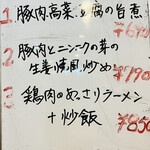 1. 豚肉、高菜、豆腐の旨煮
¥690
2. 豚肉とニンニクの芽の
生姜焼風炒め
¥790
3. 鶏肉のあっさりラーメン
+炒飯
¥850